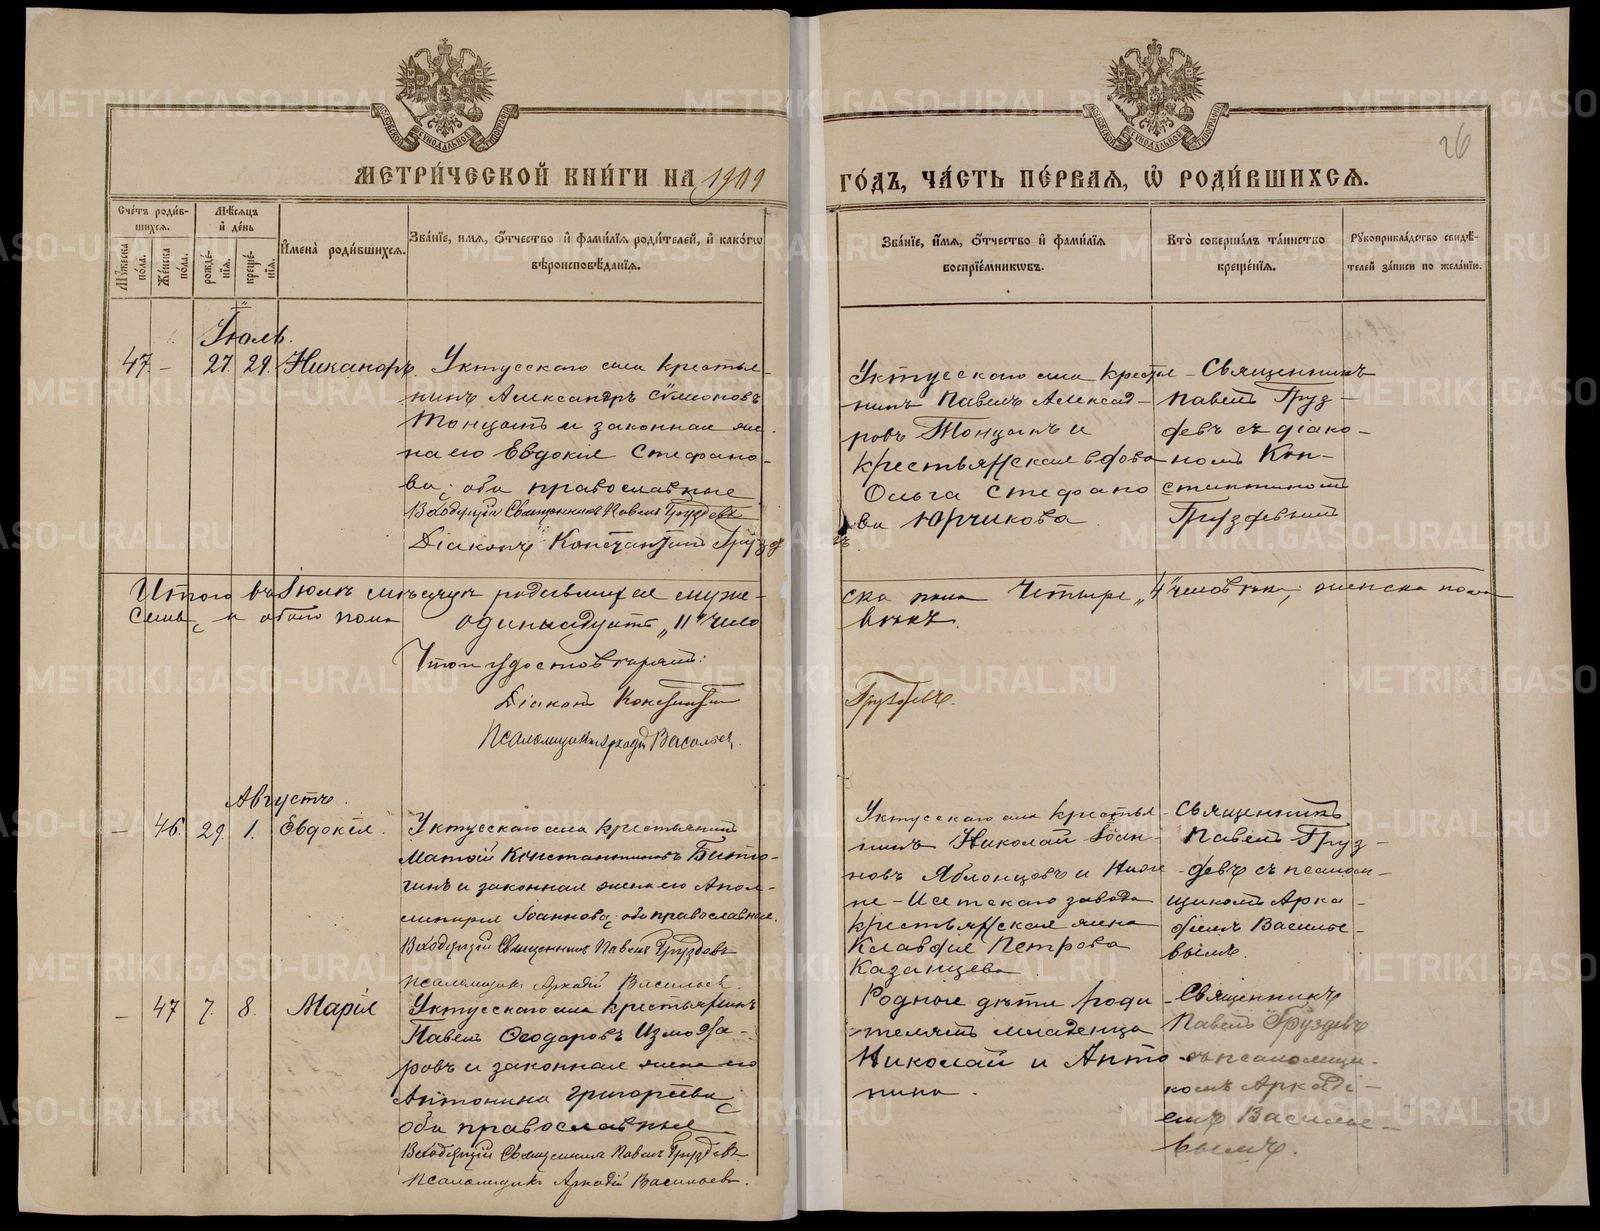 МЕТРИ́ЧЕСКОЙ КНИ́ГИ НА 1909 ГО́ДЪ, ЧА́СТЬ ПЕ́РВАЯ, Ѡ҆ РОДИ́ВШИХСЯ.
26
Сче́тъ роди́в-
шихся.
Мѣ́сяцъ
и҆ де́нь
И҆мена̀ роди́вшихся.
Зва́нїе, имя, ѻ҆́тчество и҆ фами́лїя роди́телей, и҆ какогѡ
вѣроисповѣ́данїя.
Зва́нїе, и҆́мя, ѻ҆́тчество и҆ фами́лїя
воспрїе́мникѡвъ.
Кто̀ соверша́лъ та́инство
креще́нїя.
Рꙋкоприкла́дство свидѣ́-
телей за́писи по жела́нїю.
Мꙋ́жеска
по́ла.
Же́нска
по́ла.
рожде́-
нїя.
креще́-
нїя.
Іюль.
47. - 27 29. Никаноръ
Уктусскаго села крестья-
нинъ Александръ Сѵмеоновъ
и законная же-
на его Евдокія Стефано-
ва; оба православные
Священникъ Павелъ Груздевъ
Діаконъ Константинъ Груздевъ
Уктусскаго села крестья-
нинъ Павелъ Александ-
ровъ и
крестьянская вдова
Ольга Стефано
ва Юрчикова
Священникъ
Павелъ Груз-
девъ съ діако-
номъ Кон-
стантиномъ
Груздевымъ
Итого въ Іюлѣ мѣсяцѣ родившихся муже-
ска пола четыре „4“ человѣка, женска пола
семь, а обоего пола одиннадцать „11“ чело
вѣкъ.
Что и удостовѣряютъ:
Діаконъ Константинъ
Груздевъ.
Псаломщикъ Аркадій Васильевъ.
Августъ.
- 46. 29. 1. Евдокія.
Уктусскаго села крестьянинъ
Матѳій Константиновъ
и законная жена его Апол-
линарія Іоаннова; оба православные.
Священникъ Павелъ Груздевъ
псаломщикъ Аркадій Васильевъ.
Уктусскаго села крестья-
нинъ Николай Іоан-
новъ Яблонцовъ и Ниж-
не-Исетскаго завода
крестьянская жена
Клавдія Петрова
Казанцева
Священникъ
Павелъ Груз-
девъ съ псалом-
щикомъ Арка-
діемъ Василье-
вымъ.
- 47 7. 8. Марія
Уктусскаго села крестьянинъ
Павелъ Ѳеодоровъ Измода-
ровъ и законная жена его
Антонина Григоріева;
оба православные
Священникъ Павелъ Груздевъ
псаломщикъ Аркадій Васильевъ.
Родные дѣти роди-
телямъ младенца
Николай и Анто-
нина.
Священникъ
Павелъ Груздевъ
съ псаломщи-
комъ Аркаді-
емъ Василье-
вымъ.
METRIKI.GASO-URAL.RU